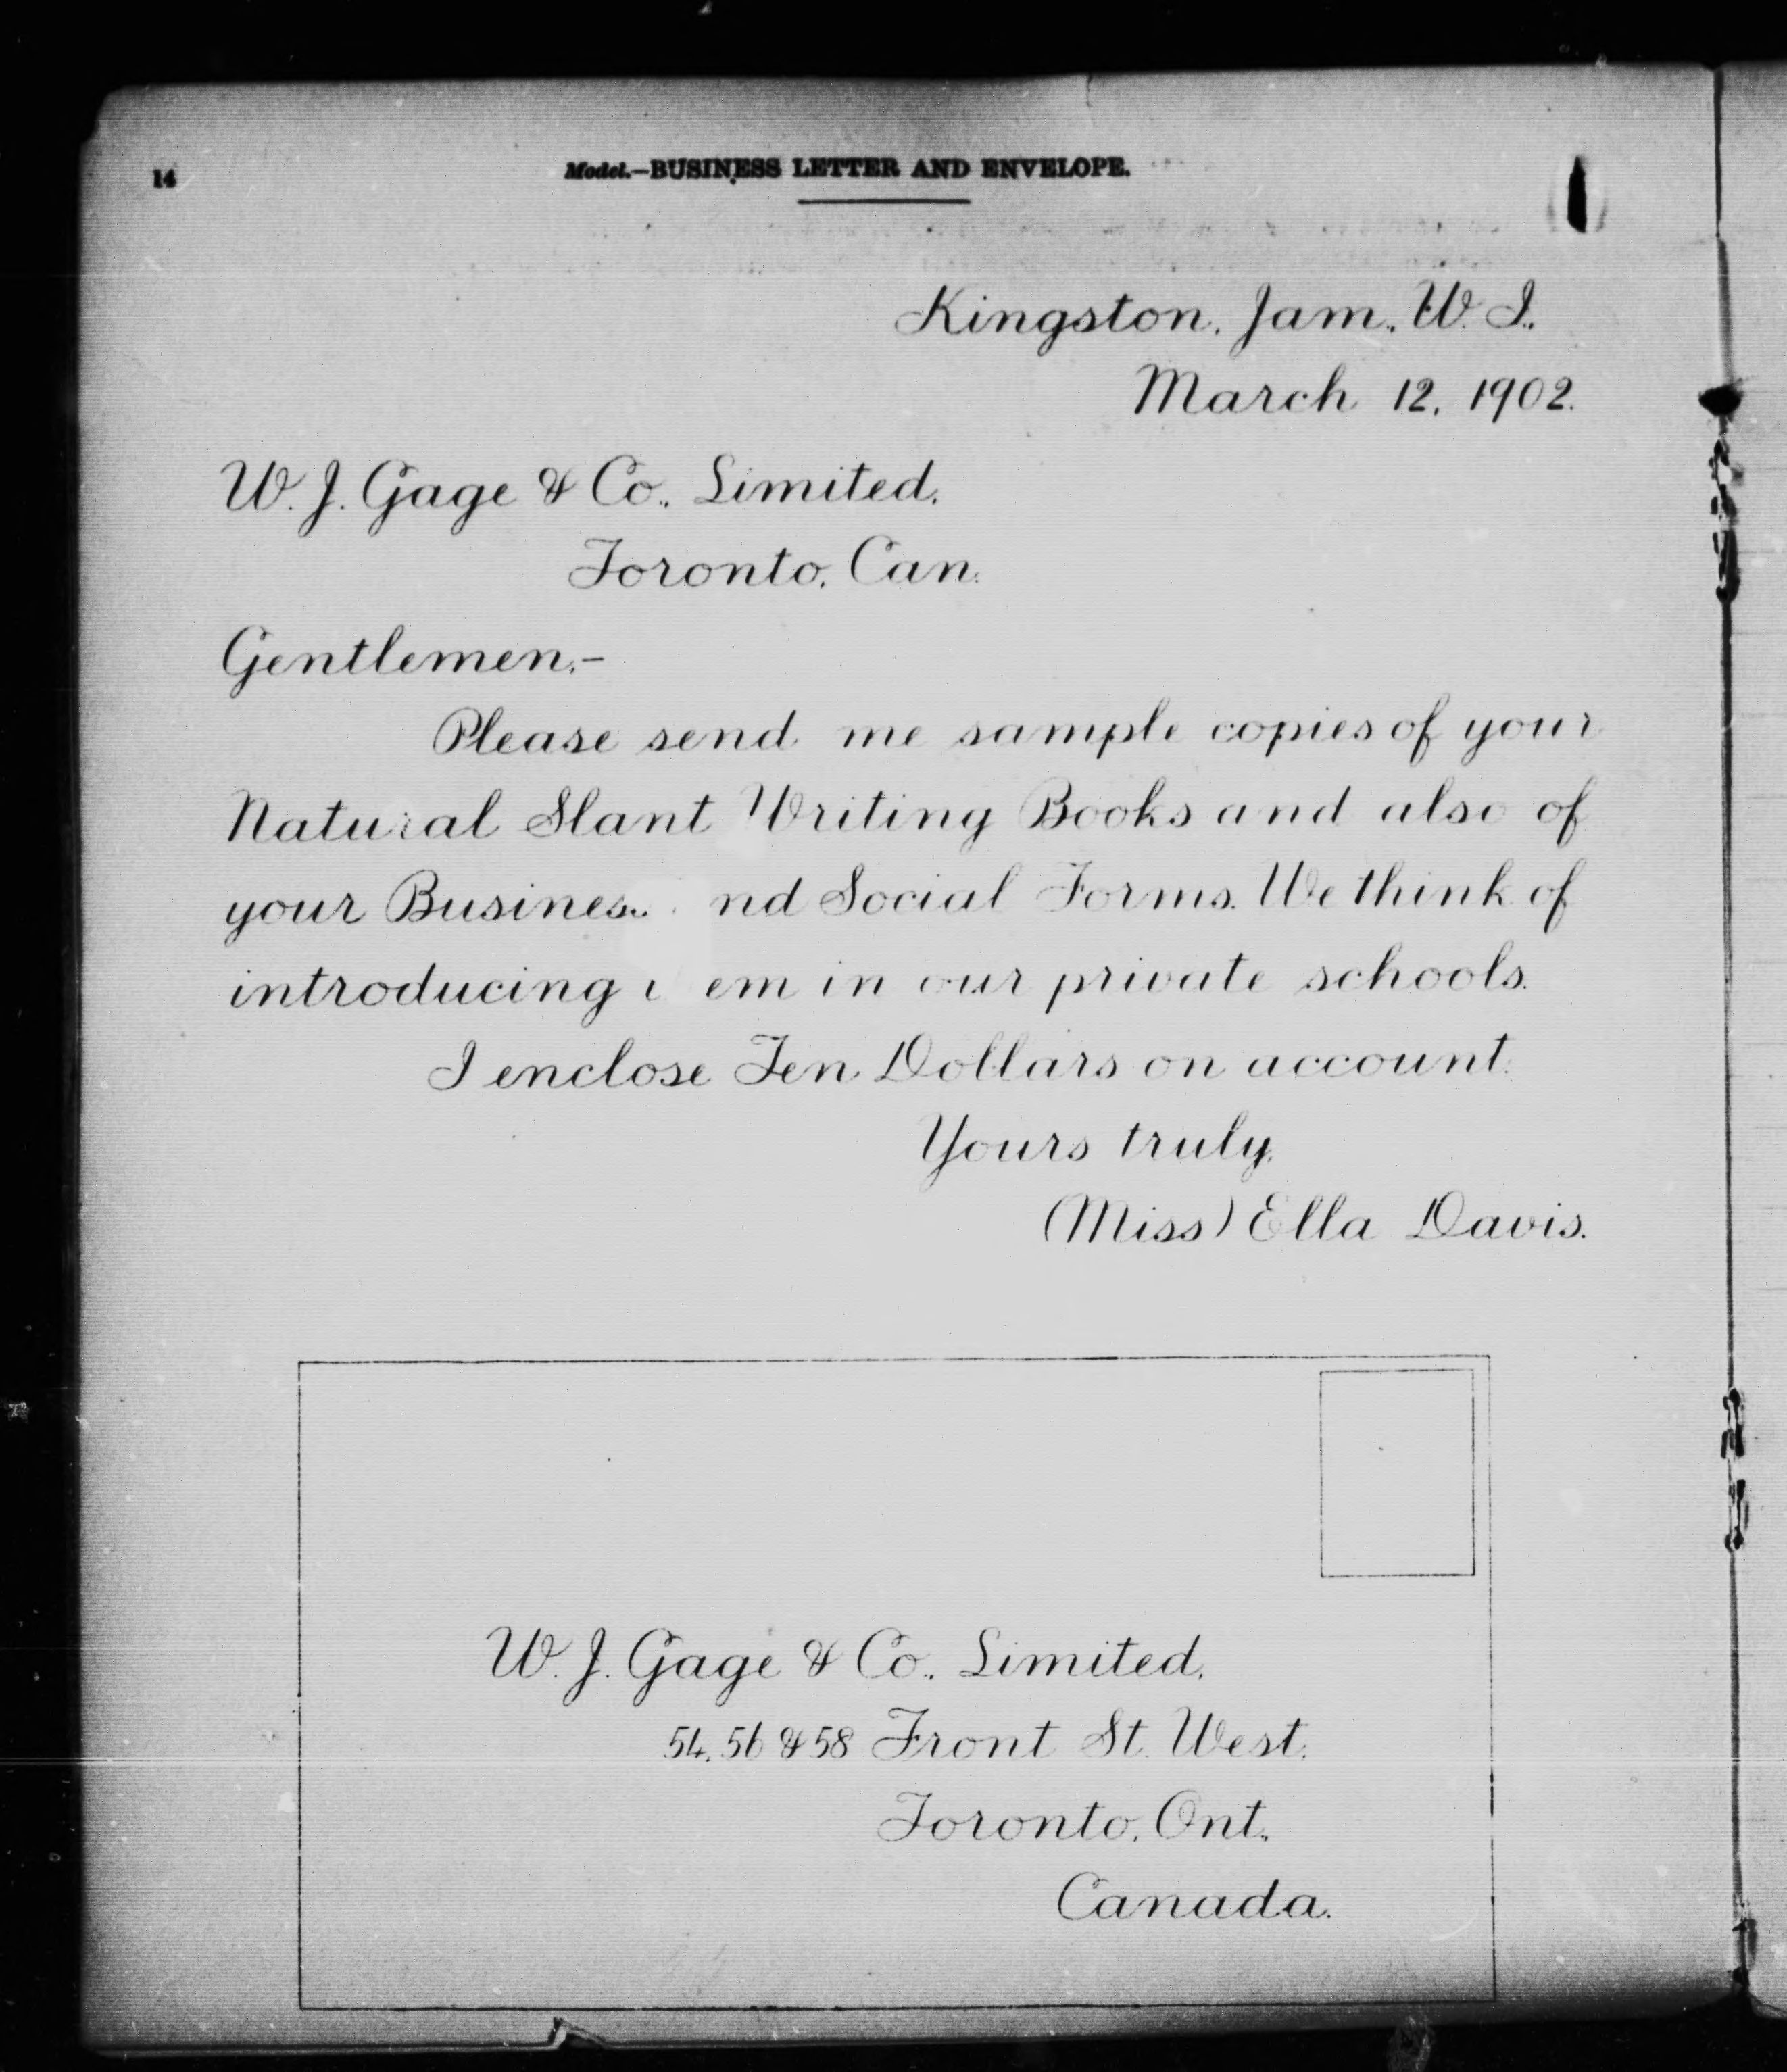 14
Model.—BUSINESS LETTER AND ENVELOPE.
Kingston, Jam., W. I.,
March 12, 1902.
W. J. Gage & Co., Limited,
Toronto, Can.
Gentlemen,—
Please send me sample copies of your
Natural Slant Writing Books and also of
your Social Forms. We think of
introducing in our private schools.
I enclose Ten Dollars on account.
Yours truly,
(Miss) Ella Davis.
W. J. Gage & Co., Limited,
54, 56 & 58 Front St. West,
Toronto, Ont.,
Canada.